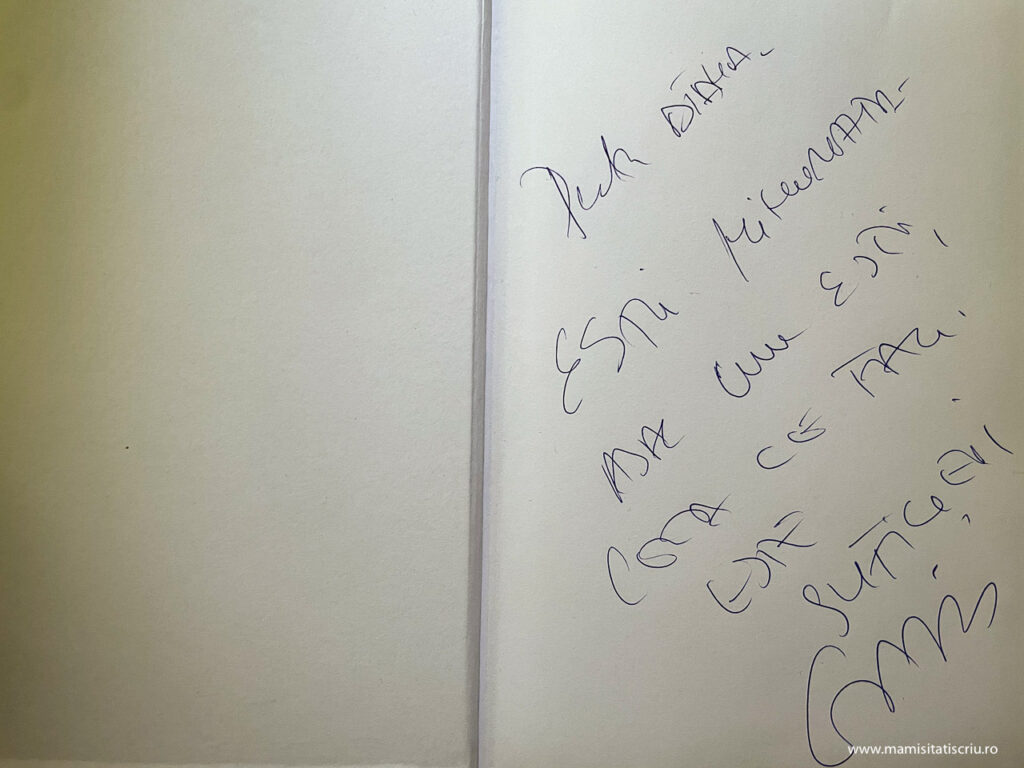 Pentru DIANA.
EȘTI MINUNATA
AȘA CUM EȘTI,
CEEA CE FACI
ESTE SUFICIENT,
www.mamisitatiscriu.ro